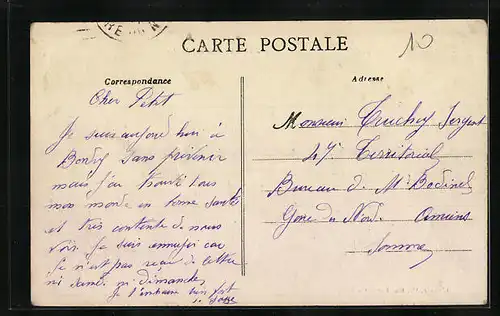 CARTE POSTALE
10
Correspondance
Adresse
Cher Petit
Je suis aujourd hui à
Bondy sans prévenir
mais j'ai trouvé tous
mon monde en bonne santé
et très contente de nous
voir. Je suis ennuyé car
je n'est pas reçu de lettre
ni samedi ni dimanche
Je t'embrasse bien fort
Monsieur Sergent
47e Territorial
Bureau de Mr
Gare du Nord. Amiens
Somme